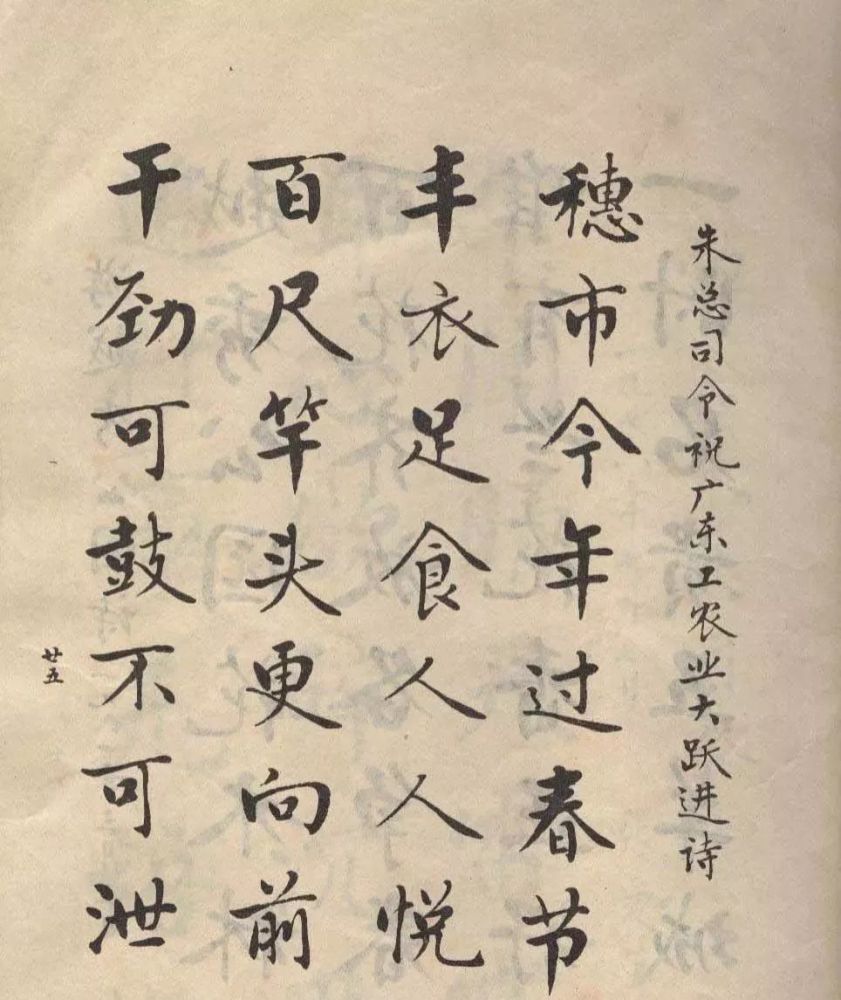 朱总司令祝广东工农业大跃进诗
穗市今年过春节
丰衣足食人人悦
百尺竿头更向前
干劲可鼓不可泄
廿五